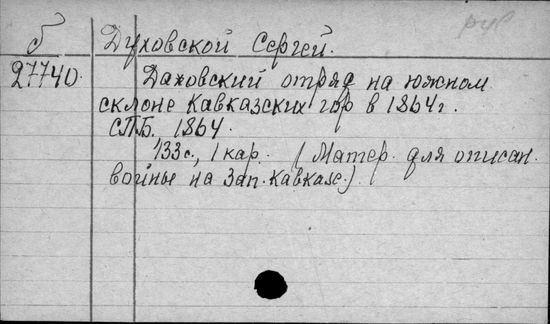 рус
б Духовской Сергей.
27740. Даховский отряд на южном
склоне Кавказских гор в 1864 г.
СПБ. 1864.
133 с., 1 кар. (Матер. для описан.
войны на Зап. Кавказе.)